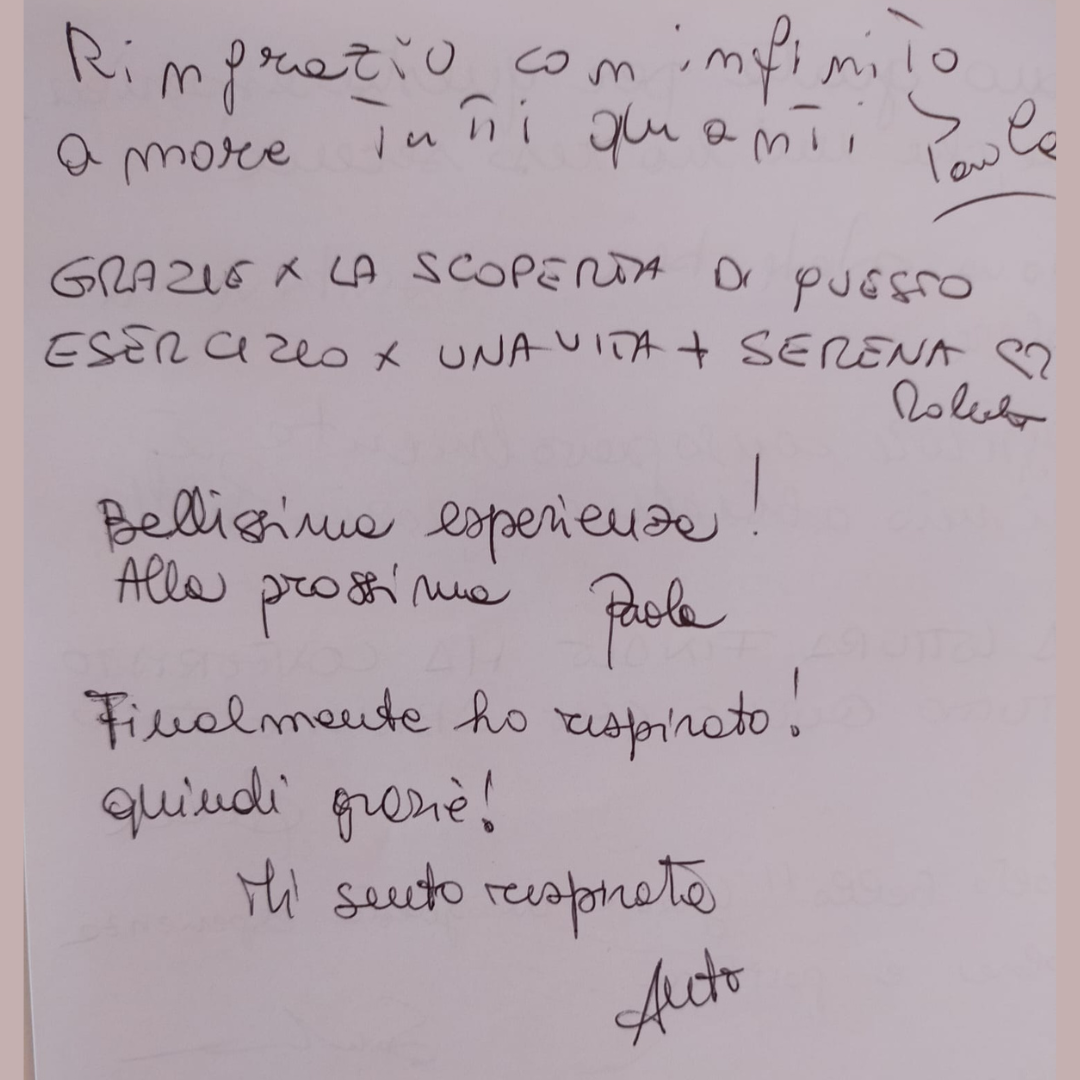 Ringrazio con infinito
amore tutti quanti Paola
GRAZIE x LA SCOPERTA DI QUESTO
ESERCIZIO x UNA VITA + SERENA ♡
Bellissima esperienza!
Alla prossima Paola
Finalmente ho respirato!
quindi grazie!
Mi sento respirata